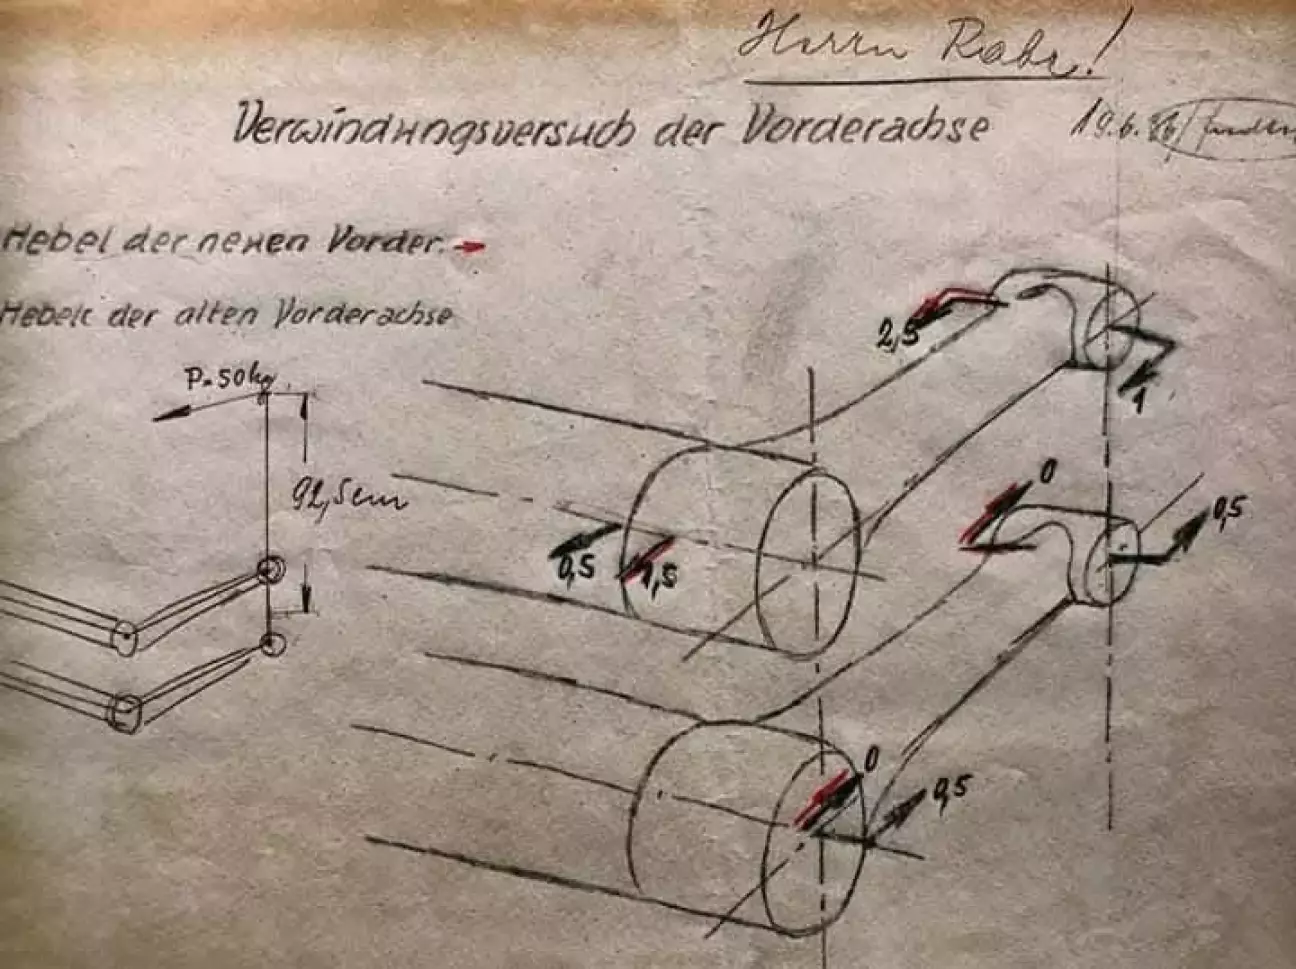 Herrn Rabe!
Verwindungsversuch der Vorderachse
19.6.
Hebel der neuen Vorder.
Hebel der alten Vorderachse
P=50kg
92,5cm
2,5
1
0,5
1,5
0
0,5
0
0,5